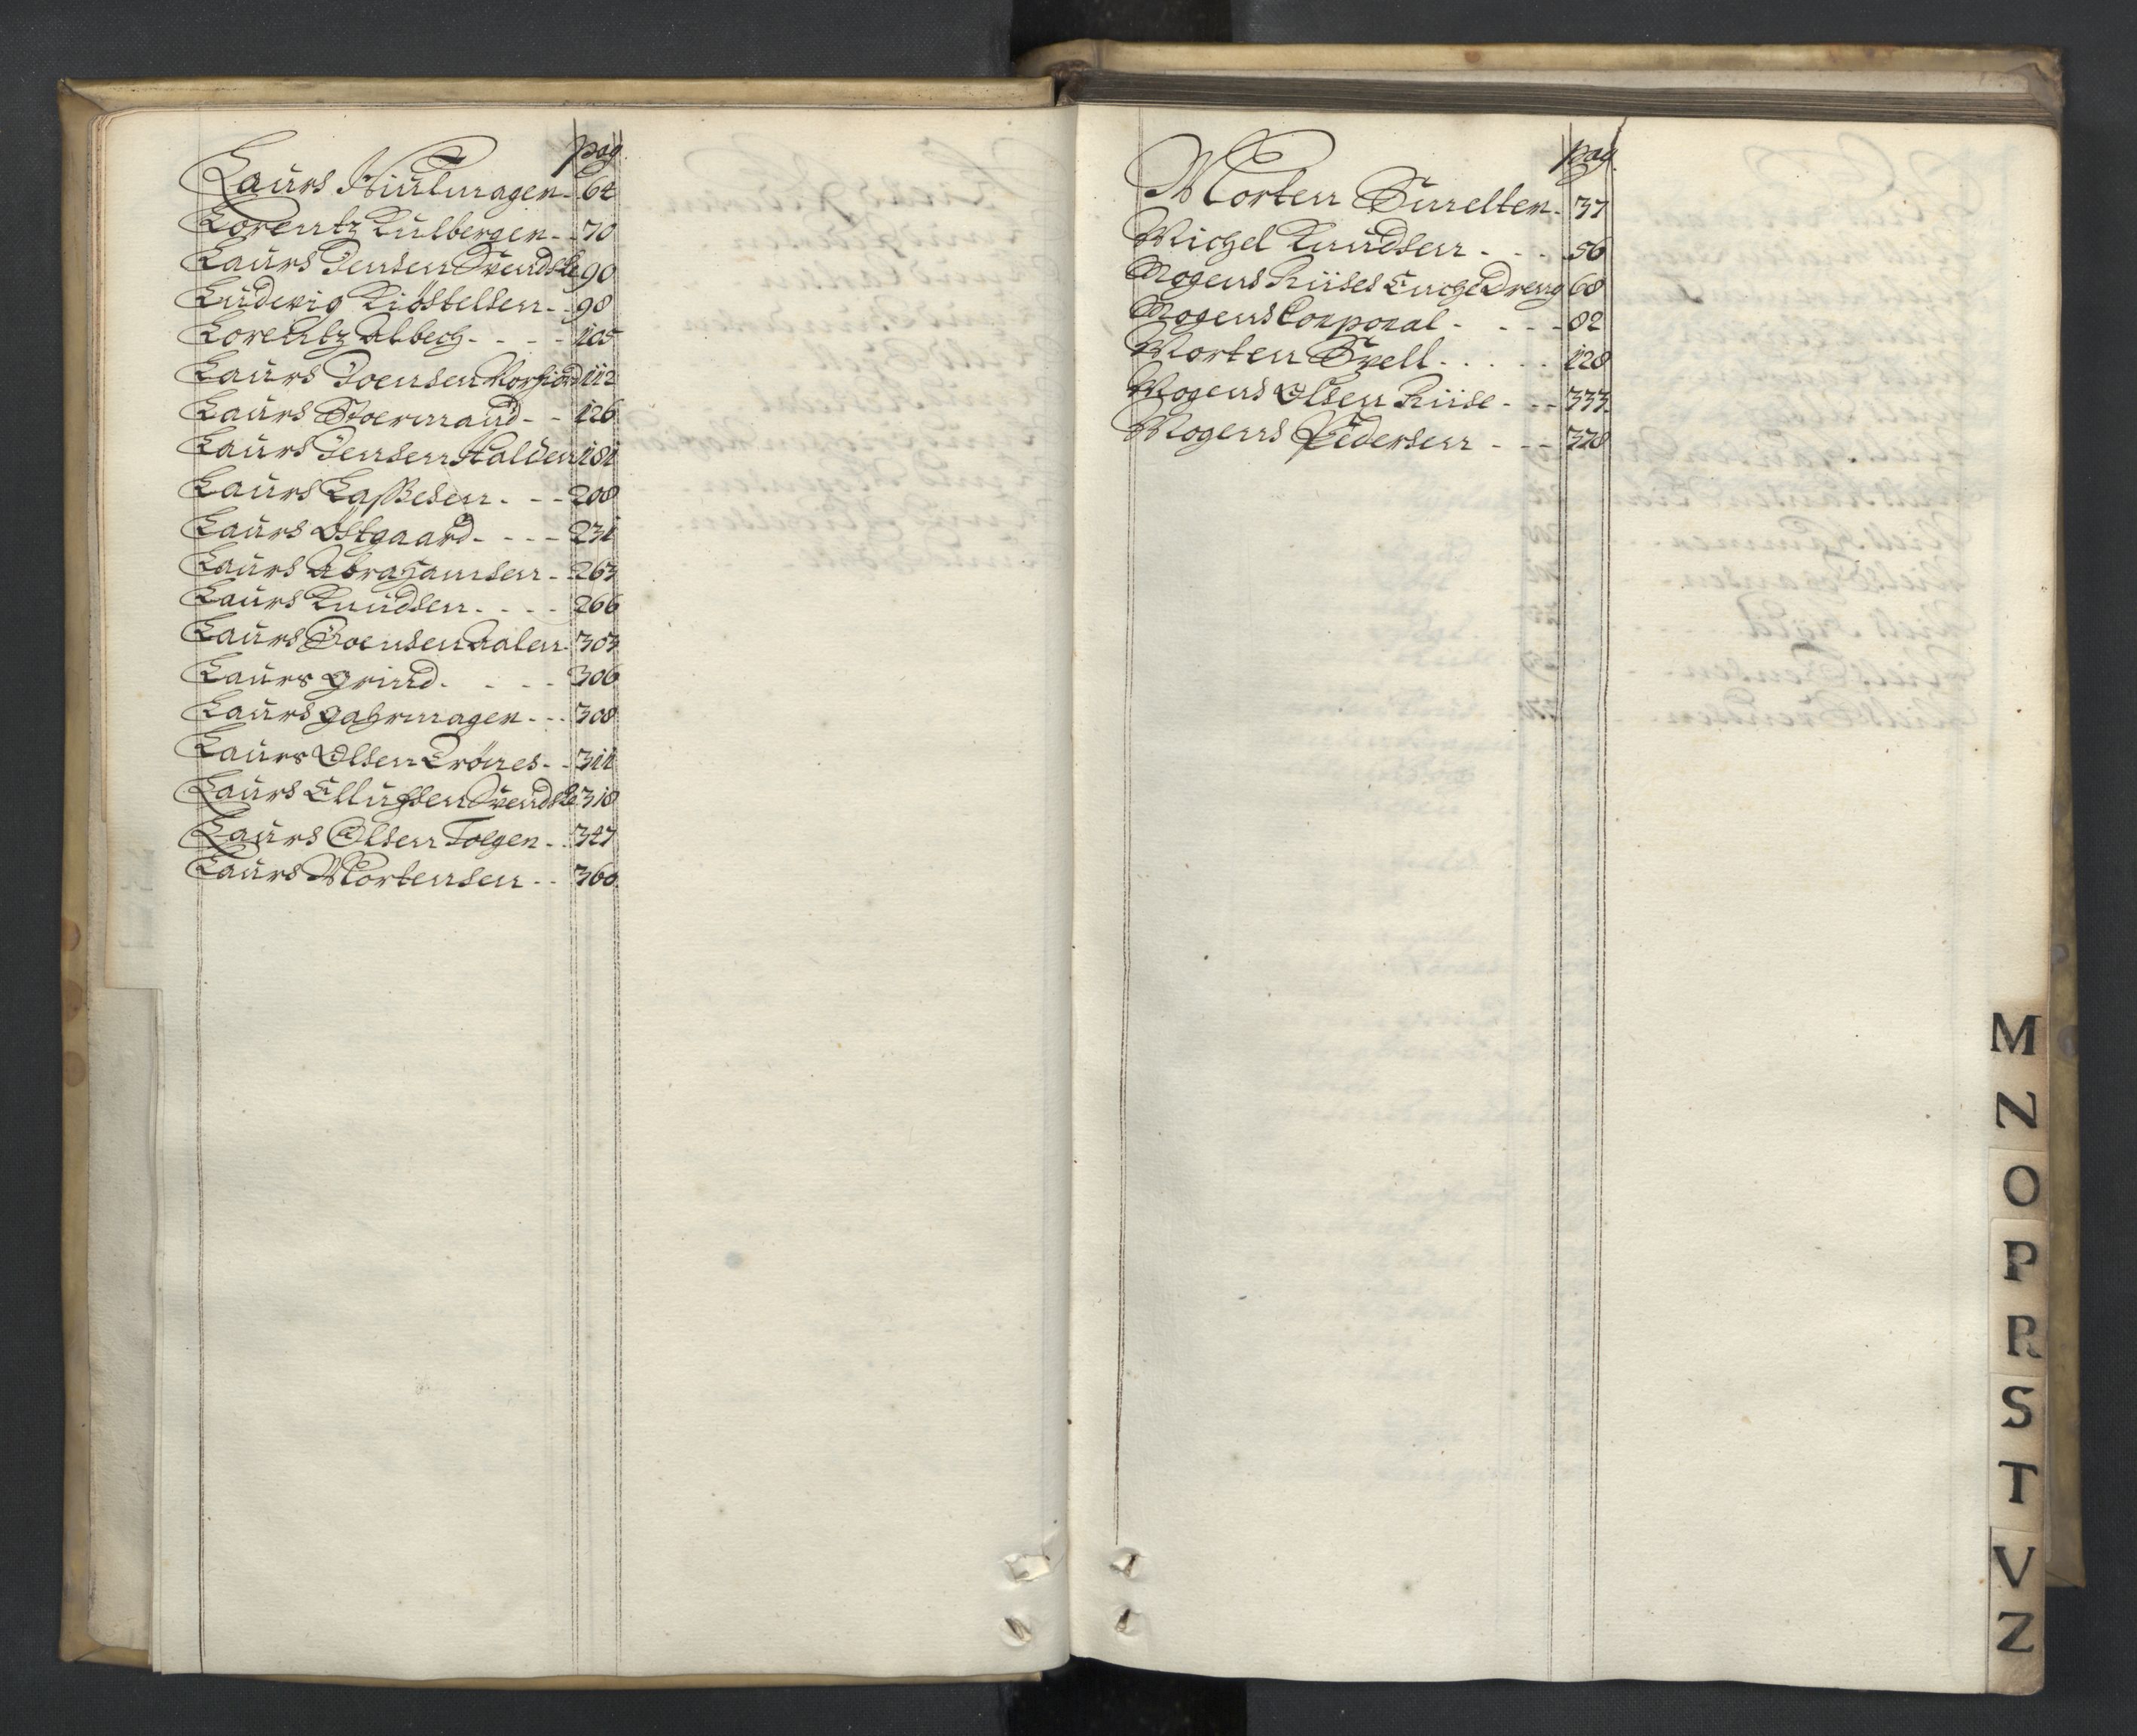 pag.
Laürs Hiülmager - 64
Lorentz Külberger - - 70
Laürs Jensen Svendske 90
Lüdevig Kiöstelsen - - 98
Lorentz Albech - - - - 105
Laürs Joensen 112
Laürs Stoermand - - 126
Laürs Jensen Halden 181
Laürs Laßesen - - - 208
Laürs Östgaard - - - - 231
Laürs Abrahamsen - 263
Laürs Knüdsen - - - - 266
Laürs Joensen Aalen - 303
Laürs Grind - - - - 306
Laürs Gahrmager - - - 308
Laürs Olsen Trönes - - 311
Laürs Ellüfsen Svendske 318
Laürs Olsen Tolgen - - 347
Laürs Mortensen - - 360
pag.
Morten Smelter - 37
Michel Knüdsen - - - - 56
Mogens Riises Enche Dreng 68
Mogens Corporal - - - - 82
Morten Svell - - - - - 128
Mogens Olsen Riise - - - 333
Mogens Pedersen - - - 378
M
N
O
P
R
S
T
V
Z